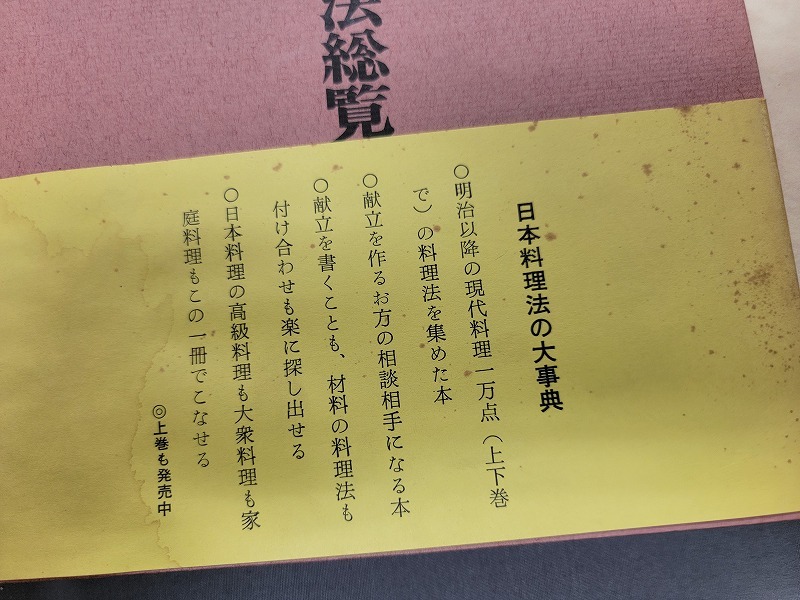 法総覧
日本料理法の大事典
○明治以降の現代料理一万点(上下巻
で)の料理法を集めた本
○献立を作るお方の相談相手になる本
○献立を書くことも、材料の料理法も
付け合わせも楽に探し出せる
○日本料理の高級料理も大衆料理も家
庭料理もこの一冊でこなせる
◎上巻も発売中